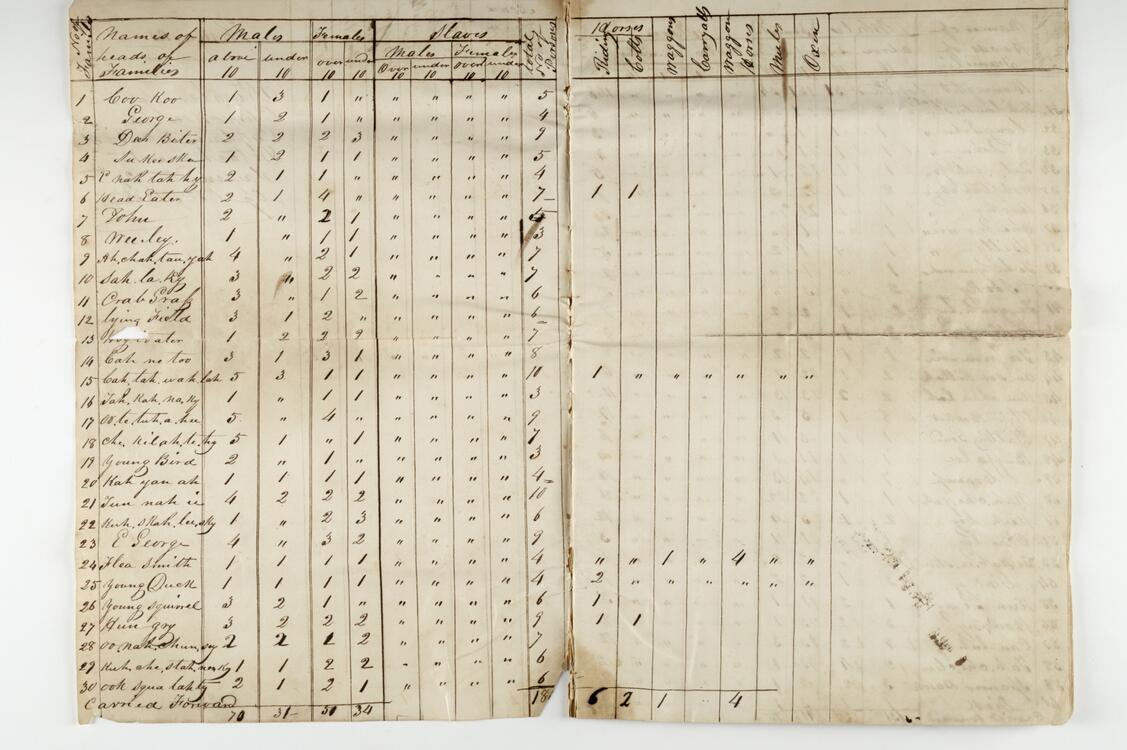 No of Families Names of heads of Families Males Females Slaves total No of Persons Horses Waggons Carryalls Waggon Horses Mules Oxen
above 10 under 10 over 10 under 10 Males Females Riding Colts
Over 10 under 10 over 10 under 10
1 Coo Koo 1 3 1 " " " " " 5
2 George 1 2 1 " " " " " 4
3 Dea Biter 2 2 2 3 " " " " 9
4 1 2 1 1 " " " " 5
5 E nah tah hy 2 1 1 " " " " " 4
6 Head Eater 2 1 4 " " " " " 7 1 1
7 John 2 " 2 1 " " " "
8 Wee.ley. 1 " 1 1 " " " " 3
9 Ah.chah.tau.yah 4 " 2 1 " " " " 7
10 Sah.la.Ky 3 " 2 2 " " " " 7
11 Crab Grass 3 " 1 2 " " " " 6
12 lying Field 3 1 2 " " " " " 6
13 1 2 2 2 " " " " 7
14 Cah ne too 3 1 3 1 " " " " 8
15 Cah.tah.wah.lah 5 3 1 1 " " " " 10 1 " " " " " "
16 Jah.Kah.na.Ky 1 " 1 1 " " " " 3
17 oo.te.tuh.a.hee 5 " 4 " " " " " 9
18 che.Kilah.te.hy 5 1 " 1 " " " " 7
19 Young Bird 2 " 1 " " " " " 3
20 Kah yan ah 1 1 1 1 " " " " 4
21 Tun nah ie 4 2 2 2 " " " " 10
22 Kuh.skah.lee.sky 1 " 2 3 " " " " 6
23 E George 4 " 3 2 " " " " 9
24 Flea Smith 1 1 1 1 " " " " 4 " " 1 " 4 " "
25 Young Duck 1 1 1 1 " " " " 4 2 " " " " " "
26 Young squirrel 3 2 1 " " " " " 6 1
27 Hun gry 3 2 2 2 " " " " 9 1 1
28 oo.nah.chun.sy 2 2 1 2 " " " " 7
29 Kuh.che.stah.nes.Ky 1 1 2 2 " " " " 6
30 ook squa tah ty 2 1 2 1 " " " " 6
Carried Forward 70 31 51 34 18 6 2 1 4